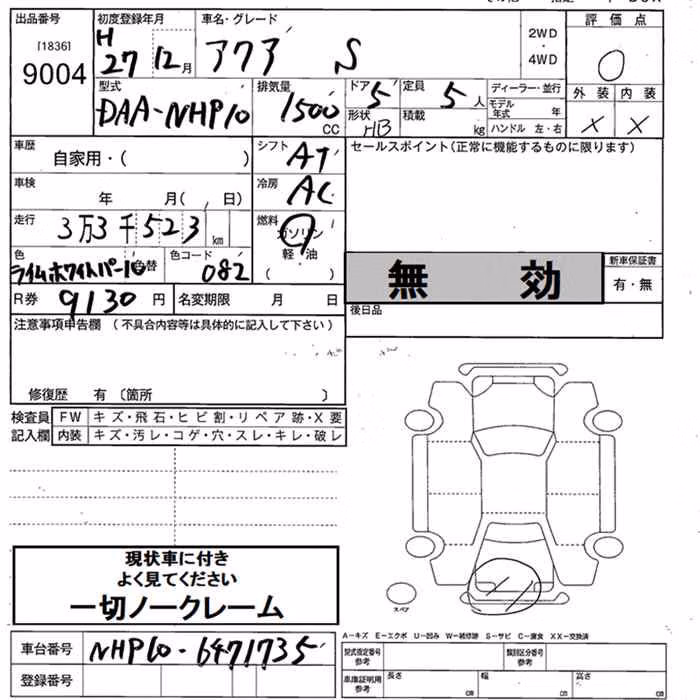 出品番号
[1836]
9004
初度登録年月
H
27 12月
車名・グレード
アクア S
2WD
・
4WD
評価点
0
外装 内装
× ×
型式
DAA-NHP10
排気量
1500
CC
ドア
5
定員
5人
形状
HB
積載
kg
ディーラー・並行
モデル年式 年
ハンドル 左・右
車歴
自家用・( )
シフト
AT
セールスポイント(正常に機能するものに限ります)
車検
年 月( , 日)
冷房
AC
走行
3万3千523
km
燃料
ガソリン
軽・油
( )
色
ライムホワイトパール
色替
色コード
082
無効
新車保証書
有・無
R券 9130 円
名変期限 月 日
後日品
注意事項申告欄 (不具合内容等は具体的に記入して下さい)
修復歴 有 〔箇所 〕
検査員 FW キズ・飛石・ヒビ割・リペア跡・X要
記入欄 内装 キズ・汚レ・コゲ・穴・スレ・キレ・破レ
現状車に付き
よく見てください
一切ノークレーム
スペア
A-キズ E-エクボ U-凹み W-補修跡 S-サビ C-腐食 XX-交換済
車台番号 NHP10-6471735
登録番号
型式指定番号
参考
類別区分番号
参考
車庫証明用
参考
長さ
cm
幅
cm
高さ
cm